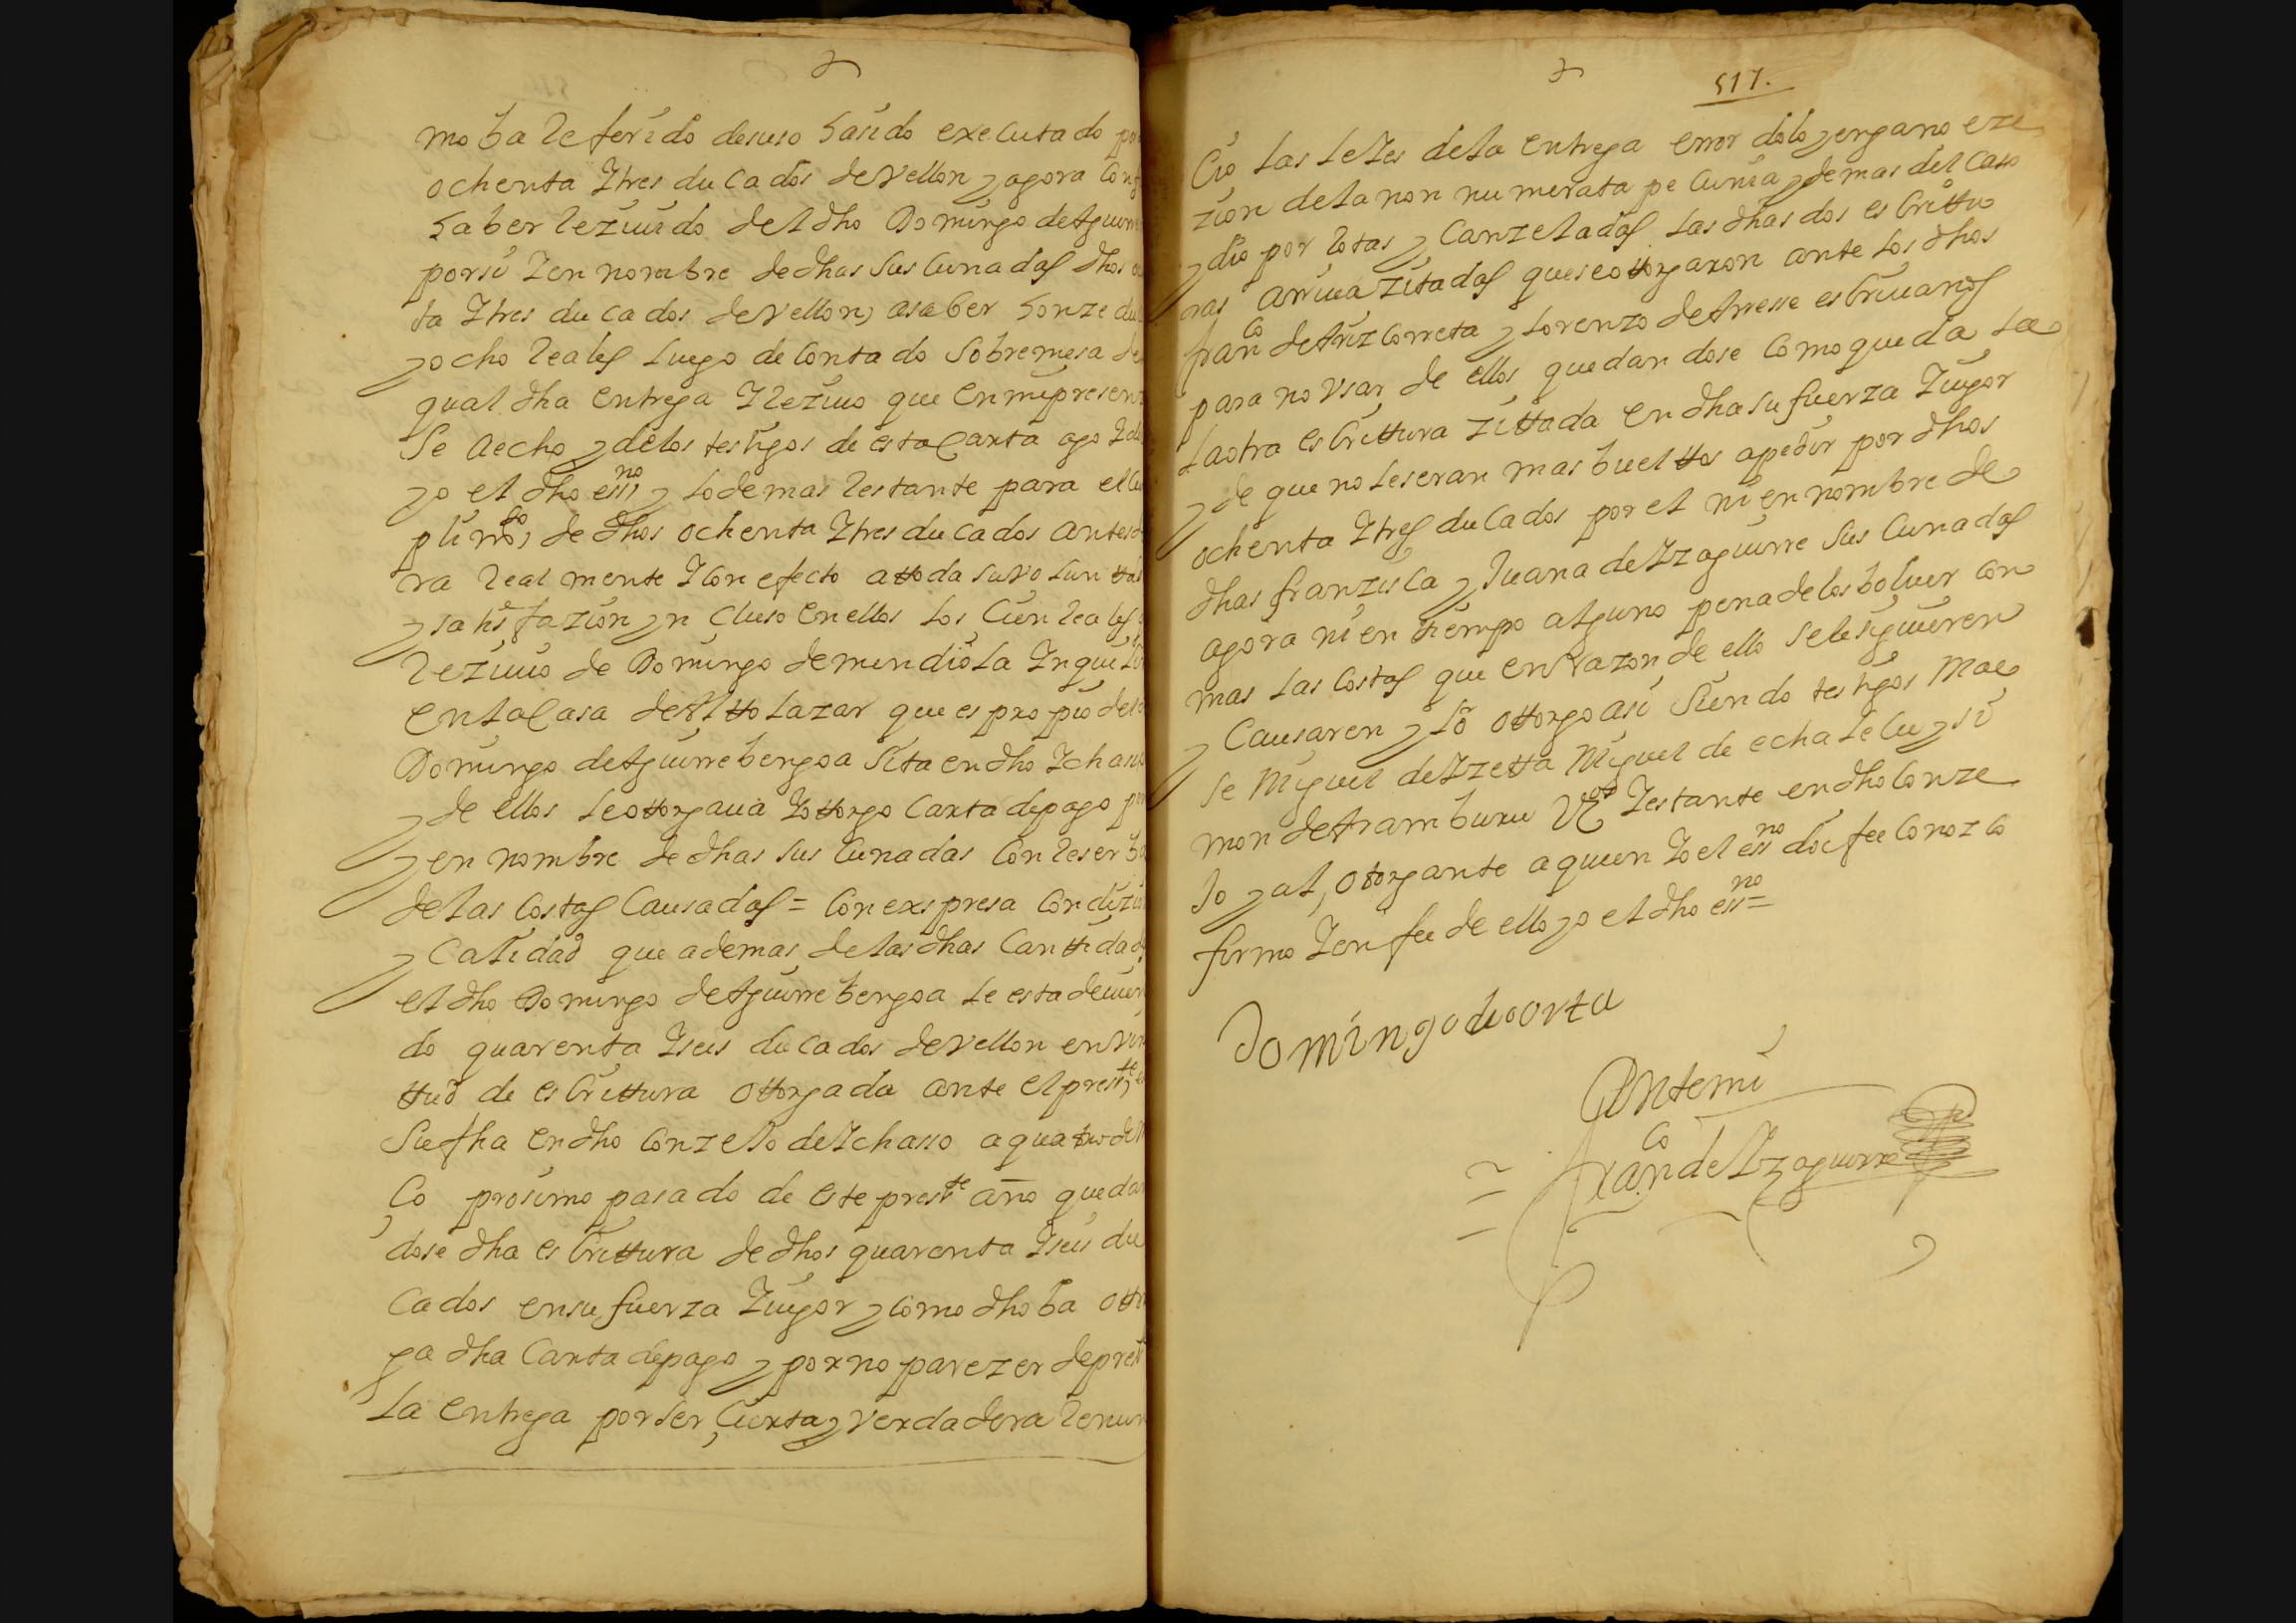 mo ba referido desuso a sido executado por
ochenta y tres ducados de vellon y agora conf
haber rezuido del dho Domingo de Aguirre
por si y en nombre de dhas sus cuñadas dhos
ta y tres ducados de vellon, a saber honze du
y ocho reales luego de contado sobre mesa de
qual dha entrega y rezuio que en mi presen
se a echo y de los testigos de esta carta ago y doi
yo el dho essno y lo demas restante para el cu
plimto, de dhos ochenta y tres ducados antes
ra realmente y con efecto a ttoda su voluntta
y satisfazion yn cluso en ellos los cien reales
rezuio de Domingo de mendiola Ynquili
en la casa de Alttolazar que es propio de
Domingo de Aguirre bengoa sita en dho Ychaso
y de ellos le ottorgaua y ottorgo carta de pago p
y en nombre de dhas sus cuñadas con reser ba
de las costas causadas = con exspresa condizi
y calidad que ademas de las dhas canttidades
el dho Domingo de Aguirre bengoa le esta deuien
do quarenta y seis ducados de vellon en vir
ttud de escrittura ottorgada ante el presste
su fha en dho conzejo de Ychasso a quatro de M
co proximo pasado de este presste año quedan
dose dha escrittura de dhos quarenta y seis du
cados en su fuerza y uigor y como dho ba otto
ga dha carta de pago y por no parezer de prest
la entrega por ser, cierta y verdadera renun
517.
cio las leies de la entrega error dolo y engano eze
zion de la non numerata pecunia y demas del caso
y dio por rotas y canzeladas las dhas dos escrittu
ras arriua zitadas que se ottorgaron ante los dhos
franco de Arizcorreta y Lorenzo de Arresse escriuanos
para no vsar de ellos quedandose como queda la
la otra escrittura zittada en dha su fuerza y uigor
y de que no le seran mas bueltos a pedir por dhos
ochenta y tres ducados por el ni en nombre de
dhas franzisca y Juana de Yzaguirre sus cunadas
agora ni en tiempo alguno pena de los boluer con
mas las costas que en razon de ello se le siguieren
y causaren y lo ottorgo asi siendo testigos Mae
se Miguel de Yzetta Miguel de echa lecu y si
mon de Aramburu Vos y estante en dho conze
jo y al, otorgante a quien yo el essno doi fee conozco
firmo y en fee de ello yo el dho essno =
Domingo de orta
Antemi
Franco de Yzaguirre